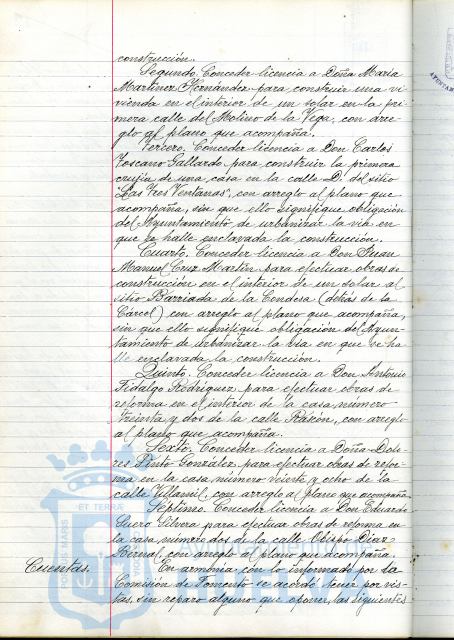 construcción.
Segundo. Conceder licencia a Doña María
Martínez Hernández para construir una vi-
vienda en el interior de un solar en la pri-
mera calle del Molino de la Vega, con arre-
glo al plano que acompaña.
Tercero. Conceder licencia a Don Carlos
Toscano Gallardo para construir la primera
crujía de una casa en la calle D. del sitio
"Las Tres Ventanas", con arreglo al plano que
acompaña, sin que ello signifique obligación
del Ayuntamiento de urbanizar la vía en
que se halle enclavada la construcción.
Cuarto. Conceder licencia a Don Juan
Manuel Cruz Martín para efectuar obras de
construcción en el interior de un solar al
sitio Barriada de la Condesa (detrás de la
Cárcel) con arreglo al plano que acompaña,
sin que ello signifique obligación del Ayun-
tamiento de urbanizar la vía en que se ha-
lle enclavada la construcción.
Quinto. Conceder licencia a Don Antonio
Fidalgo Rodríguez para efectuar obras de
reforma en el interior de la casa número
treinta y dos de la calle Rascón, con arreglo
al plano que acompaña.
Sexto. Conceder licencia a Doña Dolo-
res Pinto González para efectuar obras de refor-
ma en la casa número veinte y ocho de la
calle Villamil, con arreglo al plano que acompaña.
Septimo. Conceder licencia a Don Eduardo
Suero Silvera para efectuar obras de reforma en
la casa número dos de la calle Obispo Díaz
Bernal, con arreglo al plano que acompaña.
Cuentas.
En armonía con lo informado por la
Comisión de Fomento se acordó tener por vis-
tas, sin reparo alguno que oponer, las siguientes
ET TERRÆ
PORTUS MARIS